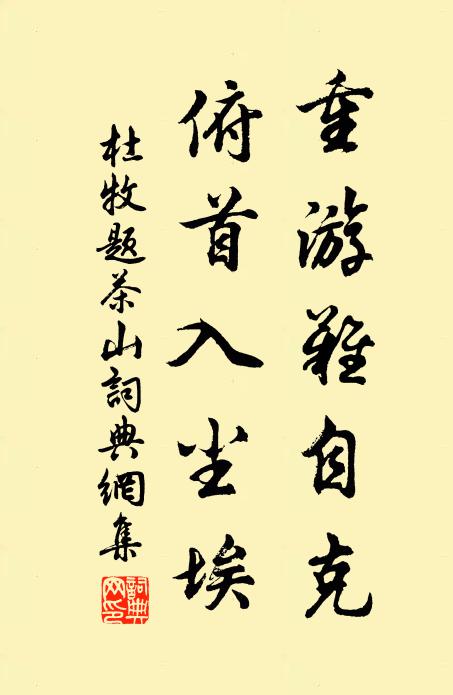 重游難自克
俯首入尘埃
杜牧题茶山詞典網集
詞典网印